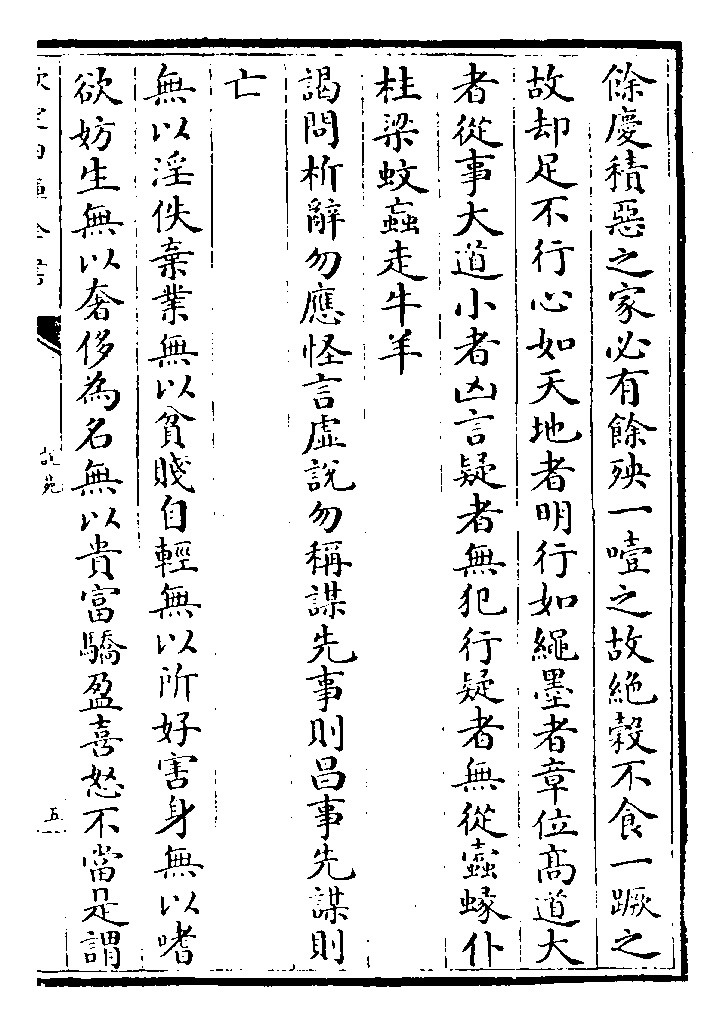 餘慶積惡之家必有餘殃一噎之故絶糓不食一蹶之
故却足不行心如天地者明行如繩墨者章位髙道大
者從事大道小者凶言疑者無犯行疑者無從蠧蝝仆
柱梁蚊䖟走牛羊
謁問析辭勿應怪言虚說勿稱謀先事則昌事先謀則
亡
無以淫佚棄業無以貧賤自輕無以所好害身無以嗜
欲妨生無以奢侈為名無以貴富驕盈喜怒不當是謂
說苑
五